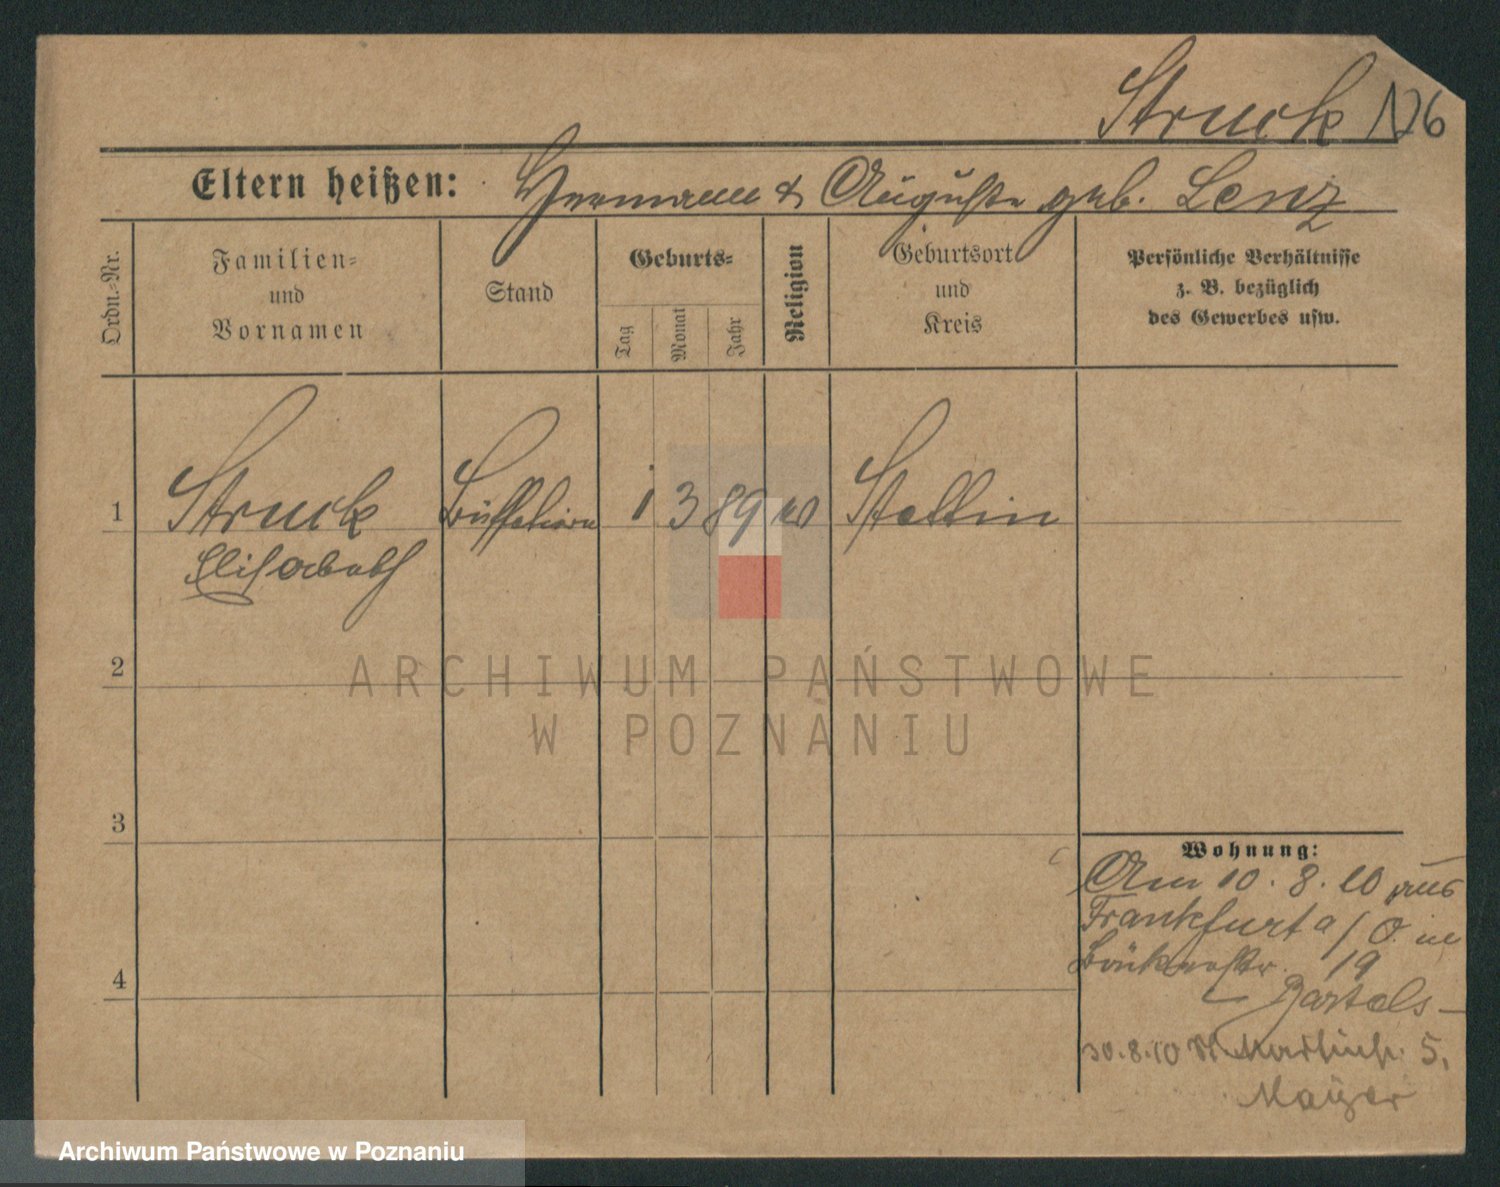 Struck 126
Eltern heißen: Hermann & Auguste geb. Lenz
Ordn.-Nr.
Familien-
und
Vornamen
Stand
Geburts-
Tag
Monat
Jahr
Religion
Geburtsort
und
Kreis
Persönliche Verhältnisse
z. B. bezüglich
des Gewerbes usw.
1 Struck 1 3 89 Stettin
Elisabeth
2
3
4
Wohnung:
Am 10. 8. 10 aus
Frankfurt a/O. in
19
Bartels
30.8.10 St. Martinstr. 5.
ARCHIWUM PAŃSTWOWE
W POZNANIU
Archiwum Państwowe w Poznaniu